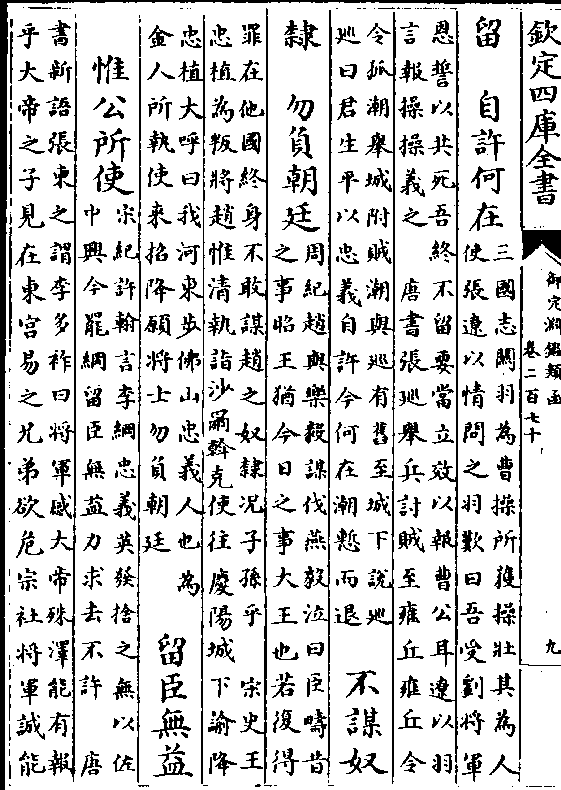 欽定四庫全書
御定淵鑑類函
卷二百七十
九
留 自許何在
三國志關羽為曹操所獲操壯其為人
使張遼以情問之羽歎曰吾受劉將軍
恩誓以共死吾終不留要當立效以報曹公耳遼以羽
言報操操義之 唐書張巡舉兵討賊至雍丘雍丘令
令狐潮舉城附賊潮與巡有舊至城下說巡
巡曰君生平以忠義自許今何在潮慙而退
不謀奴
隸 勿負朝廷
周紀趙與樂毅謀伐燕毅泣曰臣疇昔
之事昭王猶今日之事大王也若復得
罪在他國終身不敢謀趙之奴隸况子孫乎 宋史王
忠植為叛將趙惟清執詣沙斡克使往慶陽城下諭降
忠植大呼曰我河東步佛山忠義人也為
金人所執使來招降願將士勿負朝廷
留臣無益
惟公所使
宋紀許翰言李綱忠義英發捨之無以佐
中興今罷綱留臣無益力求去不許 唐
書新語張柬之謂李多祚曰將軍感大帝殊澤能有報
乎大帝之子見在東宮易之兄弟欲危宗社將軍誠能